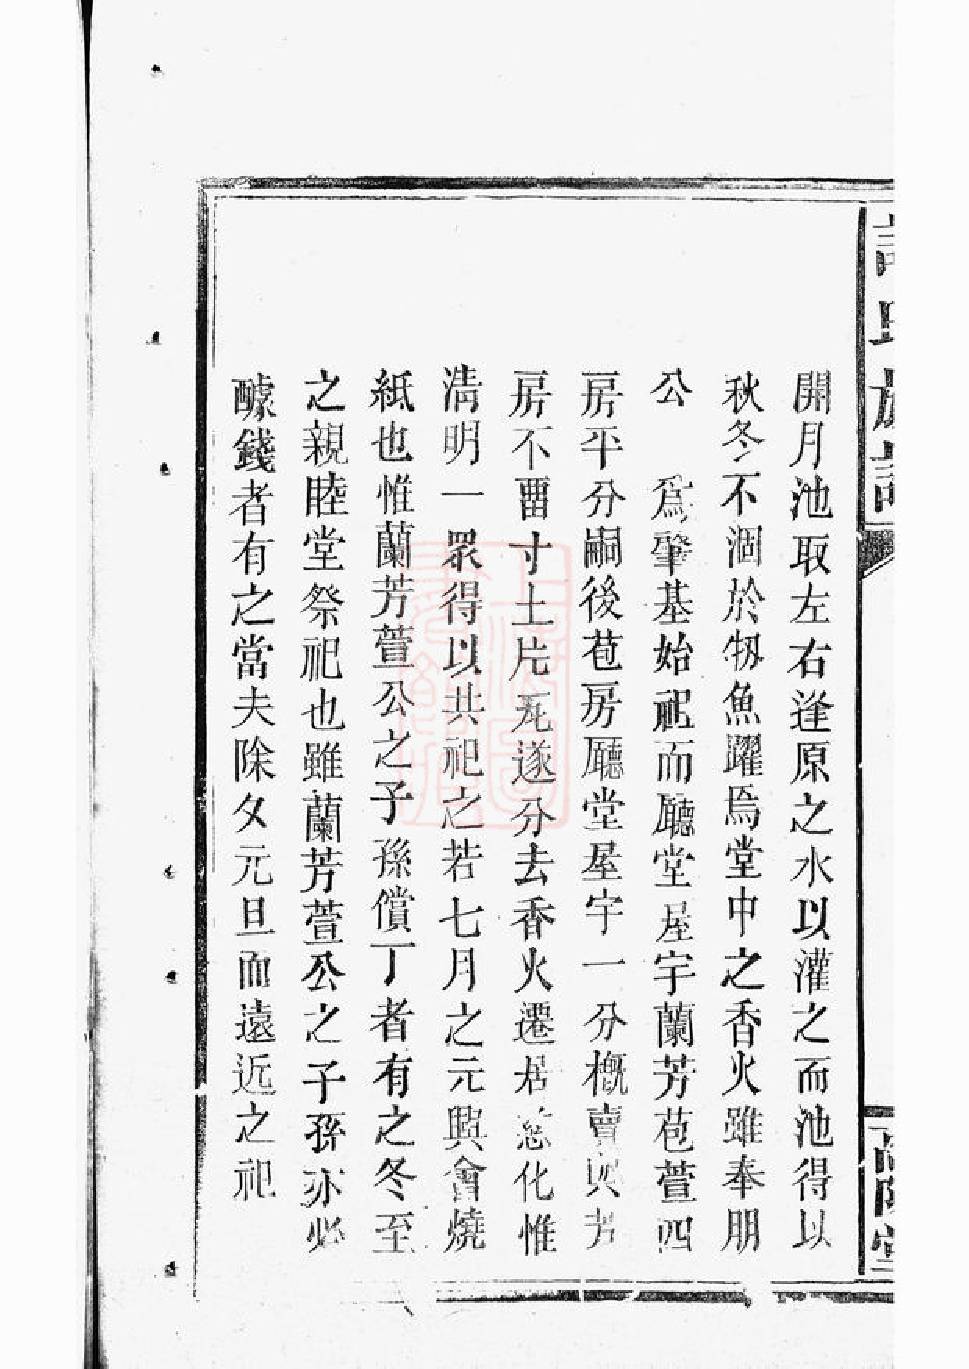 開月池取左右逢原之水以灌之而池得以
秋冬不涸於牣魚躍焉堂中之香火雖奉朋
公　為肇基始祀而廳堂屋宇蘭芳苞萱四
房平分嗣後苞房廳堂屋宇一分概賣與芳
房不畱寸土片瓦遂分去香火遷居慈化惟
清明一眾得以共祀之若七月之元興會燒
紙也惟蘭芳萱公之子孫償丁者有之冬至
之親睦堂祭祀也雖蘭芳萱公之子孫亦必
醵錢者有之當夫除夕元旦而遠近之祀